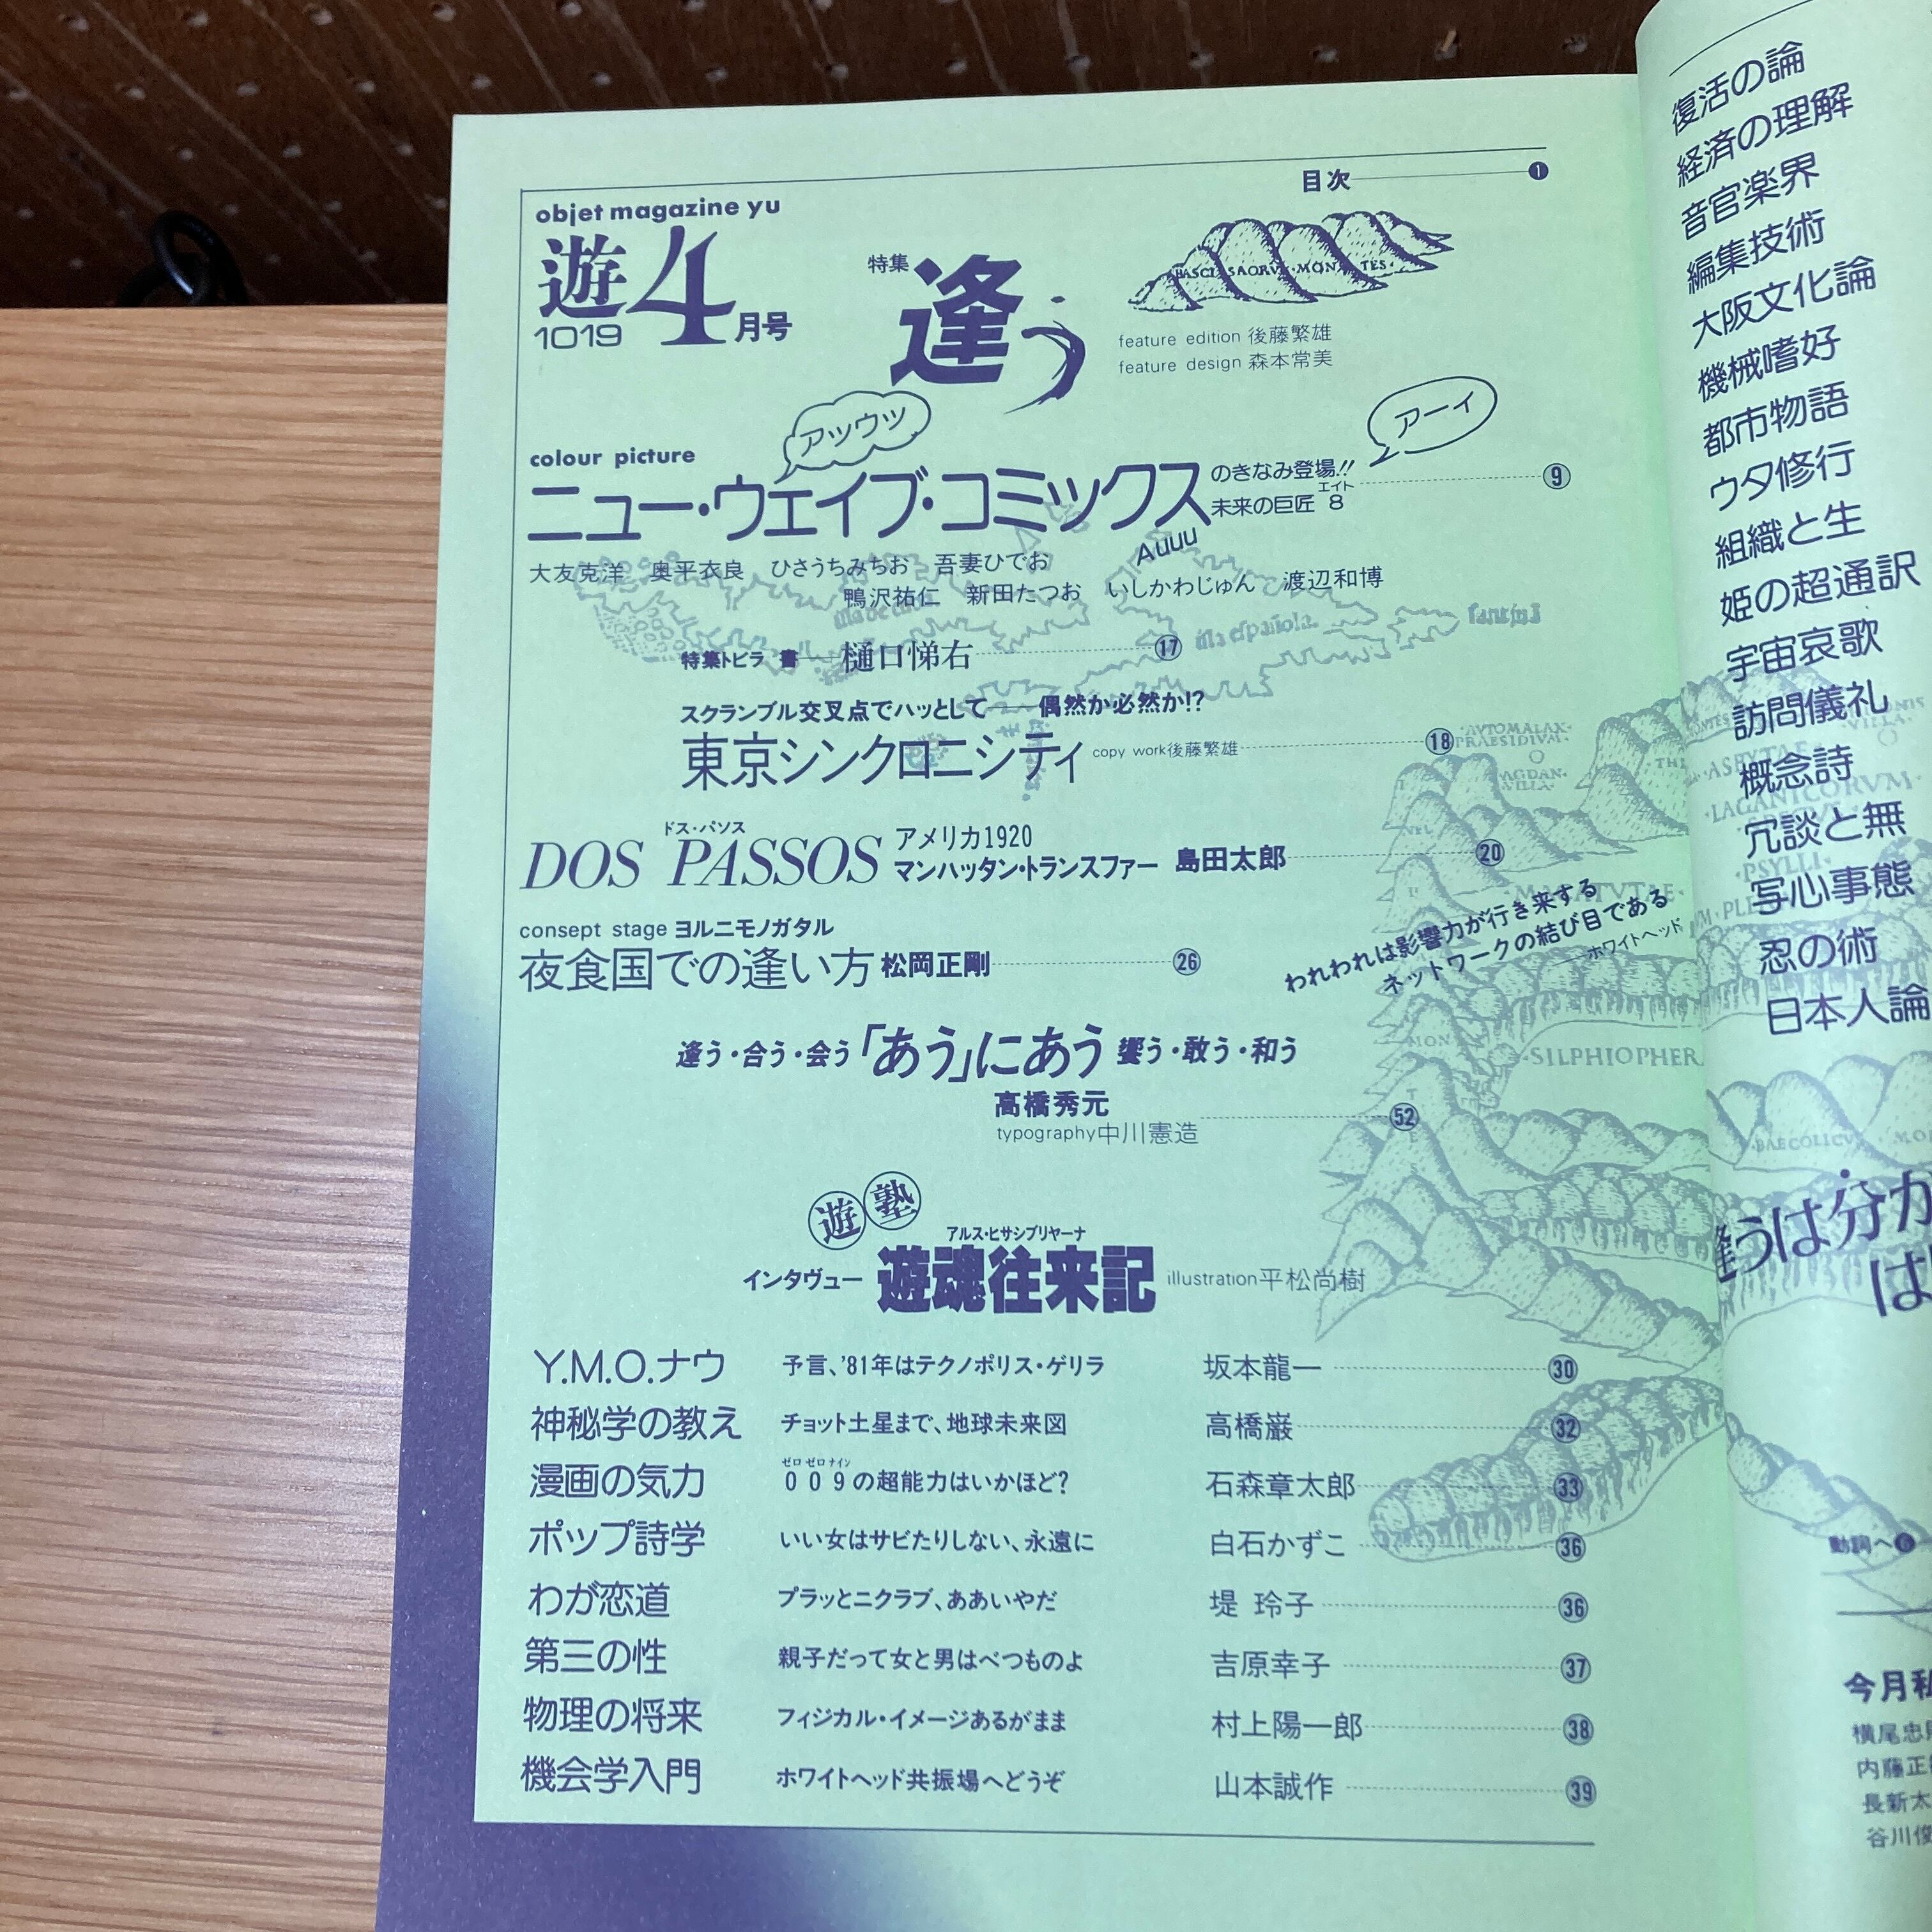 目次 1
objet magazine yu
遊4月号
1019
特集 逢う
feature edition 後藤繁雄
feature design 森本常美
アッウッ
アーィ
colour picture
ニュー・ウェイブ・コミックス
のきなみ登場!!
エイト
未来の巨匠 8
9
Auuu
大友克洋 奥平衣良 ひさうちみちお 吾妻ひでお
鴨沢祐仁 新田たつお いしかわじゅん 渡辺和博
特集トビラ 書——樋口悌右 17
スクランブル交叉点でハッとして——偶然か必然か!?
東京シンクロニシティ copy work後藤繁雄 18
ドス・パソス
DOS PASSOS
アメリカ1920
マンハッタン・トランスファー 島田太郎 20
consept stage ヨルニモノガタル
夜食国での逢い方 松岡正剛 26
われわれは影響力が行き来する
ネットワークの結び目である
——ホワイトヘッド
逢う・合う・会う「あう」にあう 饗う・敢う・和う
高橋秀元
typography中川憲造
52
遊塾
アルス・ヒサシブリヤーナ
インタヴュー 遊魂往来記 illustration平松尚樹
Y.M.O.ナウ 予言、'81年はテクノポリス・ゲリラ 坂本龍一 30
神秘学の教え チョット土星まで、地球未来図 高橋巌 32
ゼロ ゼロ ナイン
漫画の気力 009の超能力はいかほど? 石森章太郎 33
ポップ詩学 いい女はサビたりしない、永遠に 白石かずこ 36
わが恋道 プラッとニクラブ、ああいやだ 堤 玲子 36
第三の性 親子だって女と男はべつものよ 吉原幸子 37
物理の将来 フィジカル・イメージあるがまま 村上陽一郎 38
機会学入門 ホワイトヘッド共振場へどうぞ 山本誠作 39
illa española
MONTES
SILPHIOPHER
復活の論
経済の理解
音官楽界
編集技術
大阪文化論
機械嗜好
都市物語
ウタ修行
組織と生
姫の超通訳
宇宙哀歌
訪問儀礼
概念詩
冗談と無
写心事態
忍の術
日本人論
うは分か
は
動詞へ
今月私
横尾忠
内藤正
長新太
谷川俊